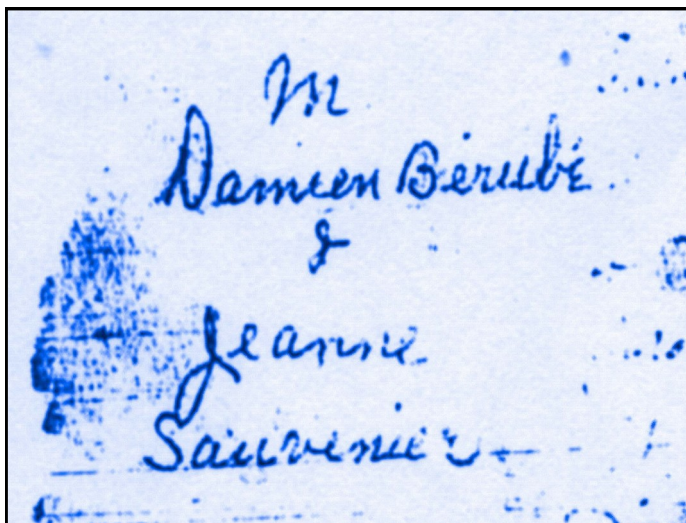 M
Damien Bérubé
&
Jeanne
Sauvenier